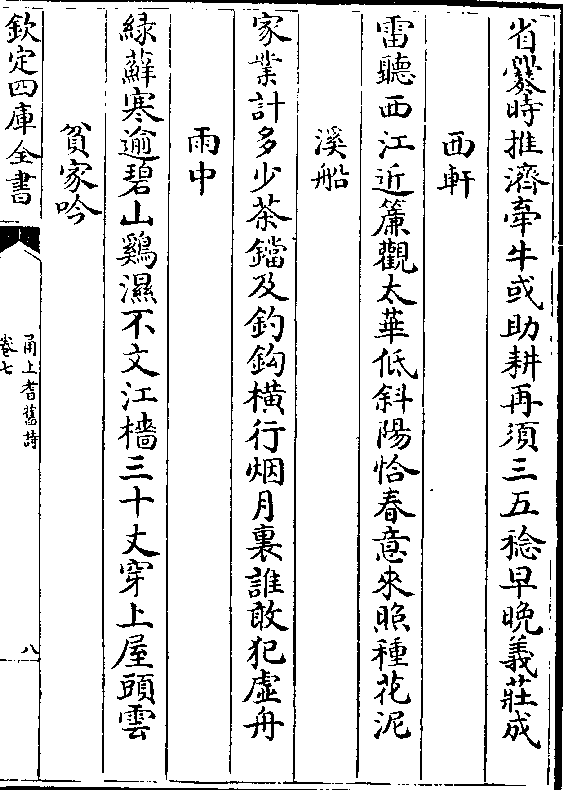 省爨時推濟牽牛或助耕再須三五稔早晚義莊成
西軒
雷聽西江近簾觀太華低斜陽恰春意來照種花泥
溪船
家業計多少茶鐺及釣鈎橫行烟月裏誰敢犯虛舟
雨中
緑蘚寒逾碧山鷄濕不文江檣三十丈穿上屋頭雲
貧家吟
欽定四庫全書
甬上耆舊詩
卷七
八